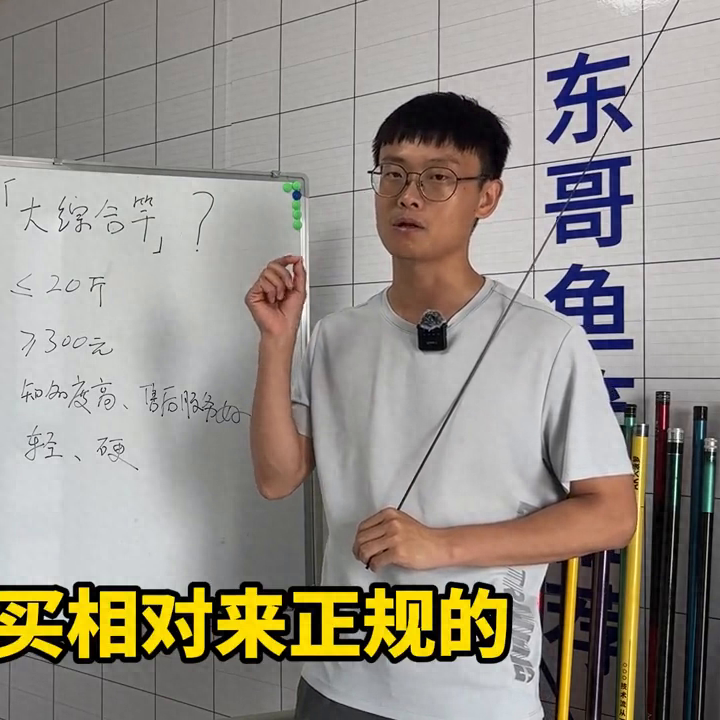 「大综合竿」？
≤20斤
≥300元
知名度高、售后服务好
轻、硬
东哥鱼
买相对来正规的